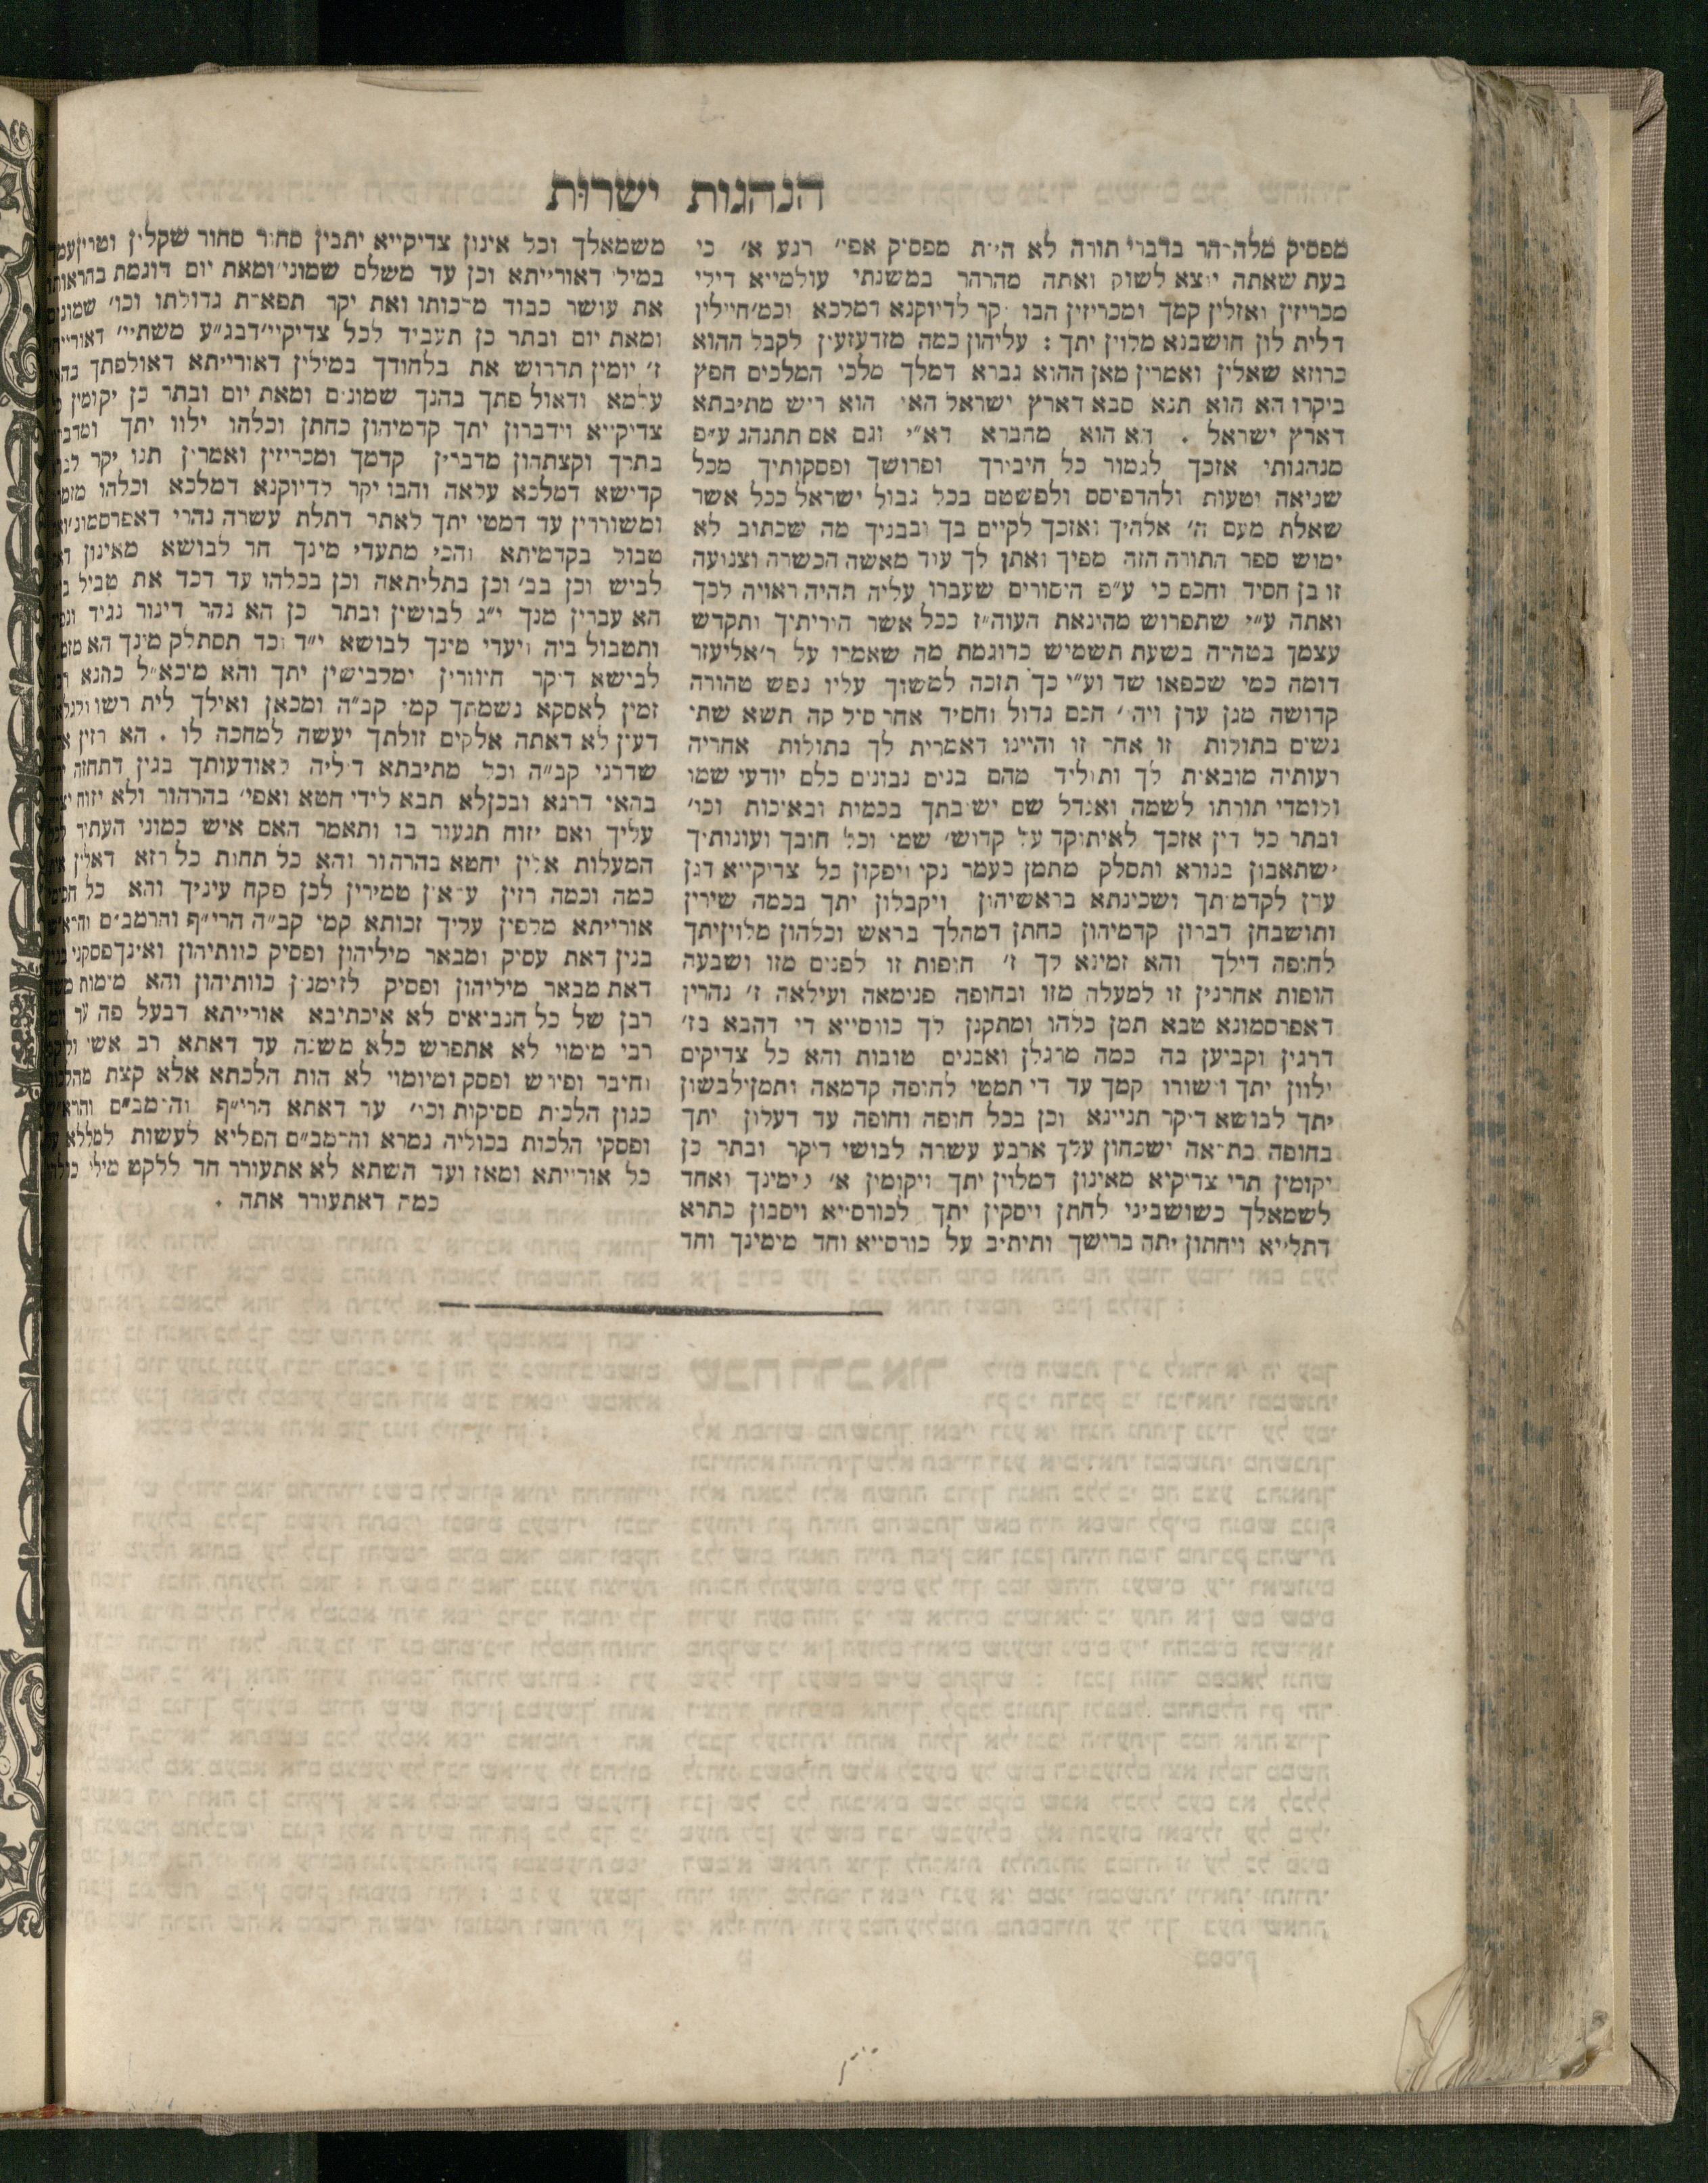 הנהגות ישרות
מפסיק מלהרהר בדברי תורה לא היית מפסיק אפי׳ רגע א׳ כי
בעת שאתה יוצא לשוק ואתה מהרהר במשנתי עולמייא דילי
מכריזין ואזלין קמך ומכריזין הבו יקר לדיוקנא דמלכא וכמ׳ חיילין
דלית לון חושבנא מלוין יתך : עליהון כמה מזדעזעין לקבל ההוא
כרוזא שאלין ואמרין מאן ההוא גברא דמלך מלכי המלכים חפץ
ביקרו הא הוא תנא סבא דארץ ישראל האי הוא ריש מתיבתא
דארץ ישראל . דא הוא מחברא דא״י וגם אם תתנהג ע״פ
מנהגותי אזכך לגמור כל חיבורך ופרושך ופסקותיך מכל
שגיאה וטעות ולהדפיסם ולפשטם בכל גבול ישראל ככל אשר
שאלת מעם ה׳ אלהיך ואזכך לקיים בך ובבניך מה שכתוב לא
ימוש ספר התורה הזה מפיך ואתן לך עוד מאשה הכשרה וצנועה
זו בן חסיד וחכם כי ע״פ היסורים שעברו עליה תהיה ראויה לכך
ואתה ע״י שתפרוש מהינאת העוה״ז ככל אשר הוריתיך ותקדש
עצמך בטהרה בשעת תשמיש כדוגמת מה שאמרו על ר׳אליעזר
דומה כמי שכפאו שד וע״י כך תזכה למשוך עליו נפש טהורה
קדושה מגן עדן ויהי׳ חכם גדול וחסיד אחר סילקה תשא שתי
נשים בתולות זו אחר זו והיינו דאמרית לך בתולות אחריה
רעותיה מובאות לך ותוליד מהם בנים נבונים כלם יודעי שמו
ולומדי תורתו לשמה ואגדל שם ישיבתך בכמות ובאיכות וכו׳
ובתר כל דין אזכך לאיתוקד על קדוש׳ שמי וכל חובך ועונותיך
ישתאבון בנורא ותסלק מתמן כעמר נקי ויפקון כל צדיקייא דגן
עדן לקדמותך ושכינתא בראשיהון ויקבלון יתך בכמה שירין
ותושבחן דברון קדמיהון כחתן דמהלך בראש וכלהון מלוין יתך
לחופה דילך והא זמינא לך ז׳ חופות זו לפנים מזו ושבעה
חופות אחרנין זו למעלה מזו ובחופה פנימאה ועילאה ז׳ נהרין
דאפרסמונא טבא תמן כלהו ומתקנן לך כורסייא די דהבא בז׳
דרגין וקביען בה כמה מרגלן ואבנים טובות והא כל צדיקים
ילוון יתך וישורו קמך עד די תמטי לחופה קדמאה ותמן ילבשון
יתך לבושא דיקר תניינא וכן בכל חופה וחופה עד דעלון יתך
בחופה בתראה ישכחון עלך ארבע עשרה לבושי דיקר ובתר כן
יקומין תרי צדיקיא מאינון דמלוין יתך ויקומין א׳ לימינך ואחד
לשמאלך כשושביני לחתן ויסקין יתך לכורסייא ויסבון כתרא
דתלייא ויחתון יתה ברישך ותיתיב על כורסייא וחד מימינך וחד
משמאלך וכל אינון צדיקייא יתבין סחור סחור שקלין וטרין עמך
במילי דאורייתא וכן עד משלם שמוני׳ ומאת יום דוגמת בהראותו
את עושר כבוד מלכותו ואת יקר תפארת גדולתו וכו׳ שמונים
ומאת יום ובתר כן תעביד לכל צדיקיי׳ דבג״ע משתיי׳
ז׳ יומין תדרוש את בלחודך במילין דאורייתא דאולפתך
עלמא ודאולפתך בהנך שמונים ומאת יום ובתר כן יקומין
צדיקייא וידברון יתך קדמיהון כחתן וכלהו ילוו יתך
בתרך וקצתהון מדברין קדמך ומכריזין ואמרין תנו יקר
קדישא דמלכא עלאה והבו יקר לדיוקנא דמלכא וכלהו
ומשוררין עד דמטי יתך לאתר דתלת עשרה נהרי
טבול בקדמיתא והכי מתעדי מינך חד לבושא מאינון
לביש וכן בב׳ וכן בתליתאה וכן בכלהו עד דכד את טביל
הא עברין מנך י״ג לבושין ובתר כן הא נהר דינור נגיד
ותטבול ביה ויעדי מינך לבושא י״ד וכד תסתלק מינך הא
לבישא דיקר חיוורין ומלבישין יתך והא מיכא״ל כהנא
זמין לאסקא נשמתך קמי קב״ה ומכאן ואילך לית רשו
דעין לא דאתה אלקים זולתך יעשה למחכה לו . הא רזין
שדרני קב״ה וכל מתיבתא דיליה לאודעותך בגין דתחזה
בהאי דרגא ובכן לא תבא לידי חטא ואפי׳ בהרהור ולא יזוח
עליך ואם יזוח תגעור בו ותאמר האם איש כמוני העתיד
המעלות אלין יחטא בהרהור והא כל תחות כל רזא דאלין
כמה וכמה רזין עלאין טמירין לכן פקח עיניך והא כל
אורייתא מלפין עליך זכותא קמי קב״ה הרי״ף והרמב״ם
בגין דאת עסיק ומבאר מיליהון ופסיק כוותיהון
דאת מבאר מיליהון ופסיק לזימנין כוותיהון והא מימות
רבן של כל הנביאים לא איכתיבא אורייתא דבעל פה עד
רבי מימוי לא אתפרש כלא משנה עד דאתא רב אשי
וחיבר ופירש ופסק ומיומוי לא הות הלכתא אלא קצת
כגון הלכות פסיקות וכו׳ עד דאתא הרי״ף והרמב״ם
ופסקי הלכות בכוליה גמרא והרמב״ם הפליא לעשות
כל אורייתא ומאז ועד השתא לא אתעורר חד ללקט מילי
כמה דאתעורר אתה .